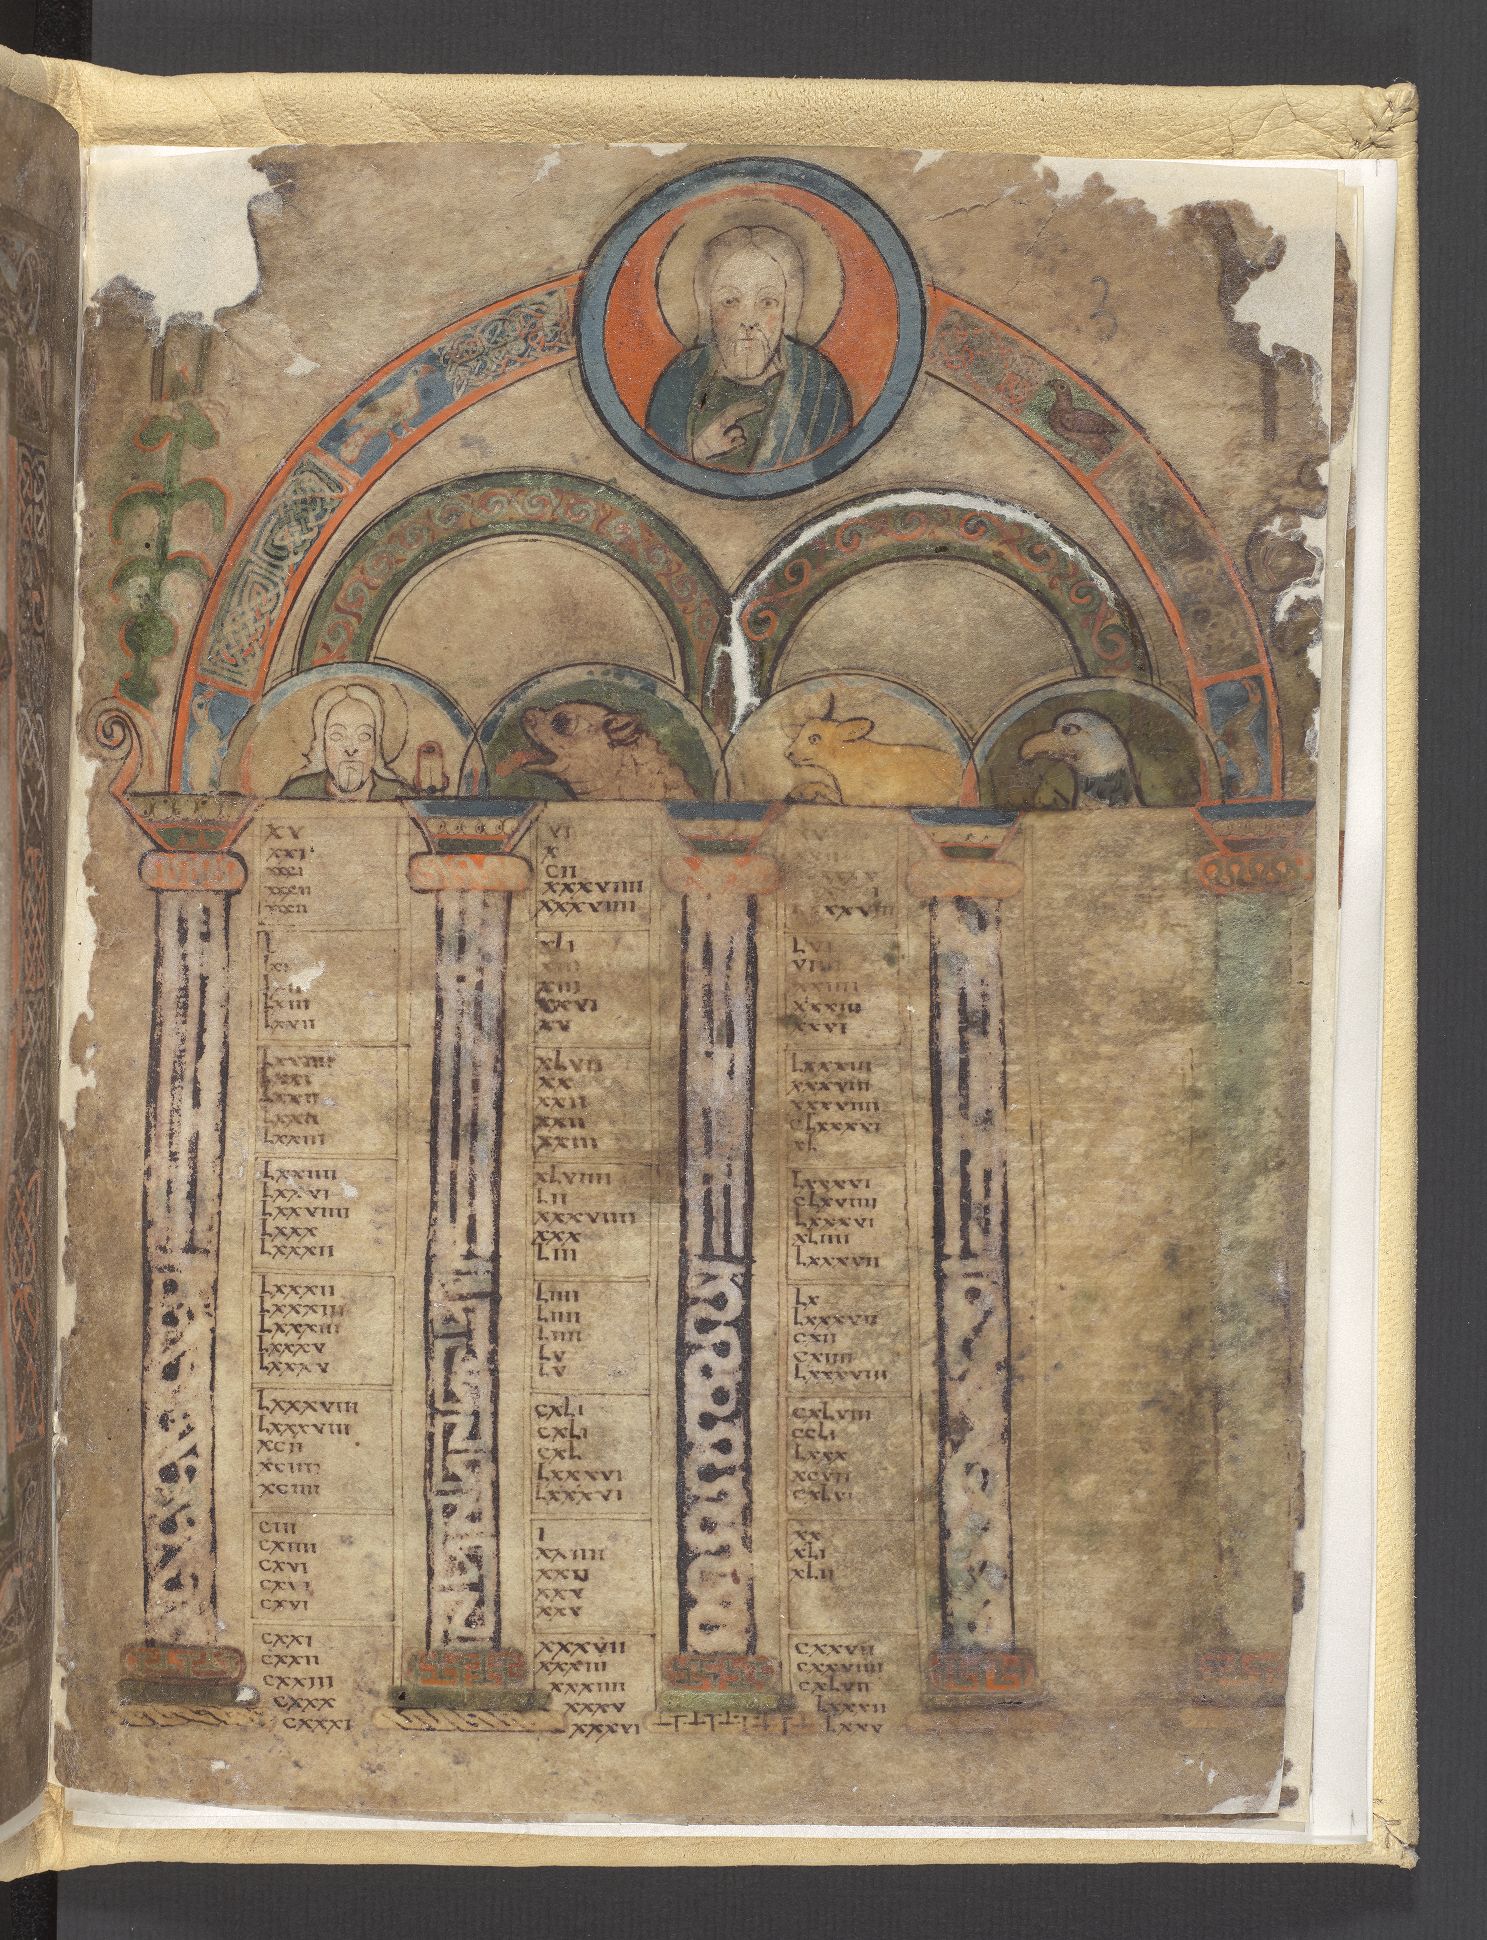 3
XV
XXI
XXCI
XXCII
XXII
L
LXIII
LXVII
LXVIIII
LXXI
LXXII
LXXII
LXXIII
LXXIIII
LXXVI
LXXVIIII
LXXX
LXXXII
LXXXII
LXXXIII
LXXXIII
LXXXV
LXXXV
LXXXVIII
LXXXVIII
XCII
XCIIII
XCIIII
CIII
CXIIII
CXVI
CXVI
CXVI
CXXI
CXXII
CXXIII
CXXX
CXXXI
VI
X
CII
XXXVIIII
XXXVIIII
XLI
XIII
XXVI
XV
XLVII
XX
XXII
XXII
XXIII
XLVIIII
LII
XXXVIIII
XXX
LIII
LIIII
LIIII
LIIII
LV
LV
CXLI
CXLI
CXL
LXXXVI
LXXXVI
I
XXIIII
XXII
XXV
XXV
XXXVII
XXXIII
XXXIIII
XXXV
XXXVI
LVI
XXXIII
XXVI
LXXXIII
XXXVIII
XXXVIIII
CLXXXVI
XL
LXXXVI
CLXVIIII
LXXXVI
XLIIII
LXXXVII
LX
LXXXVII
CXII
CXIIII
LXXXVIII
CXLVIII
CCLI
LXXX
XCVII
CXLVI
XX
XLI
XLII
CXXVII
CXXVIIII
CXLVII
LXXII
LXXV